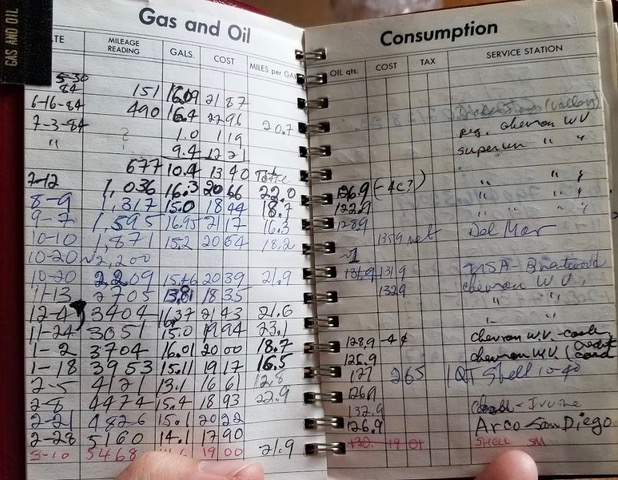 GAS AND OIL
Gas and Oil Consumption
MILEAGE READING GALS. COST MILES per GAL. OIL qts. COST TAX SERVICE STATION
5-30
84 151 16.09 21 87
6-16-84 490 16.4 22 96
7-3-84 ? 1.0 1 19 20.7 reg. chevron WV
" 9.4 12 21 super un " "
677 10.4 13 40
7-12 1,036 16.3 20 66 22.0 126.9 (-4¢?) " "
8-9 1,317 15.0 18 44 18.7 122.9 " "
9-7 1,595 16.95 21 17 16.3 128.9 " "
10-10 1,871 15.2 20 64 18.2 135.9 net Del Mar
10-20 2,200 -1
10-20 2209 15.46 20 39 21.9 131.9 131.9 Brentwood
11-13 2705 13.81 18 35 132.9 chevron WV
12-4 3404 16.37 21 43 21.6 " "
11-24 3051 15.0 19 94 23.1 " "
1-2 3704 16.01 20 00 18.7 128.9 -4¢ chevron W.V. - cash
1-18 3953 15.11 19 17 16.5 126.9 chevron W.V. (credit card
2-5 4121 13.1 16 61 12.8 127 265 1QT Shell 10-40
2-8 4474 15.4 18 93 22.9 126.9
2-21 4826 15.1 20 22 132.9 Irvine
2-28 5160 14.1 17 90 126.9 Arco San Diego
3-10 5468 19 00 21.9 130. 19 01 SHELL SM